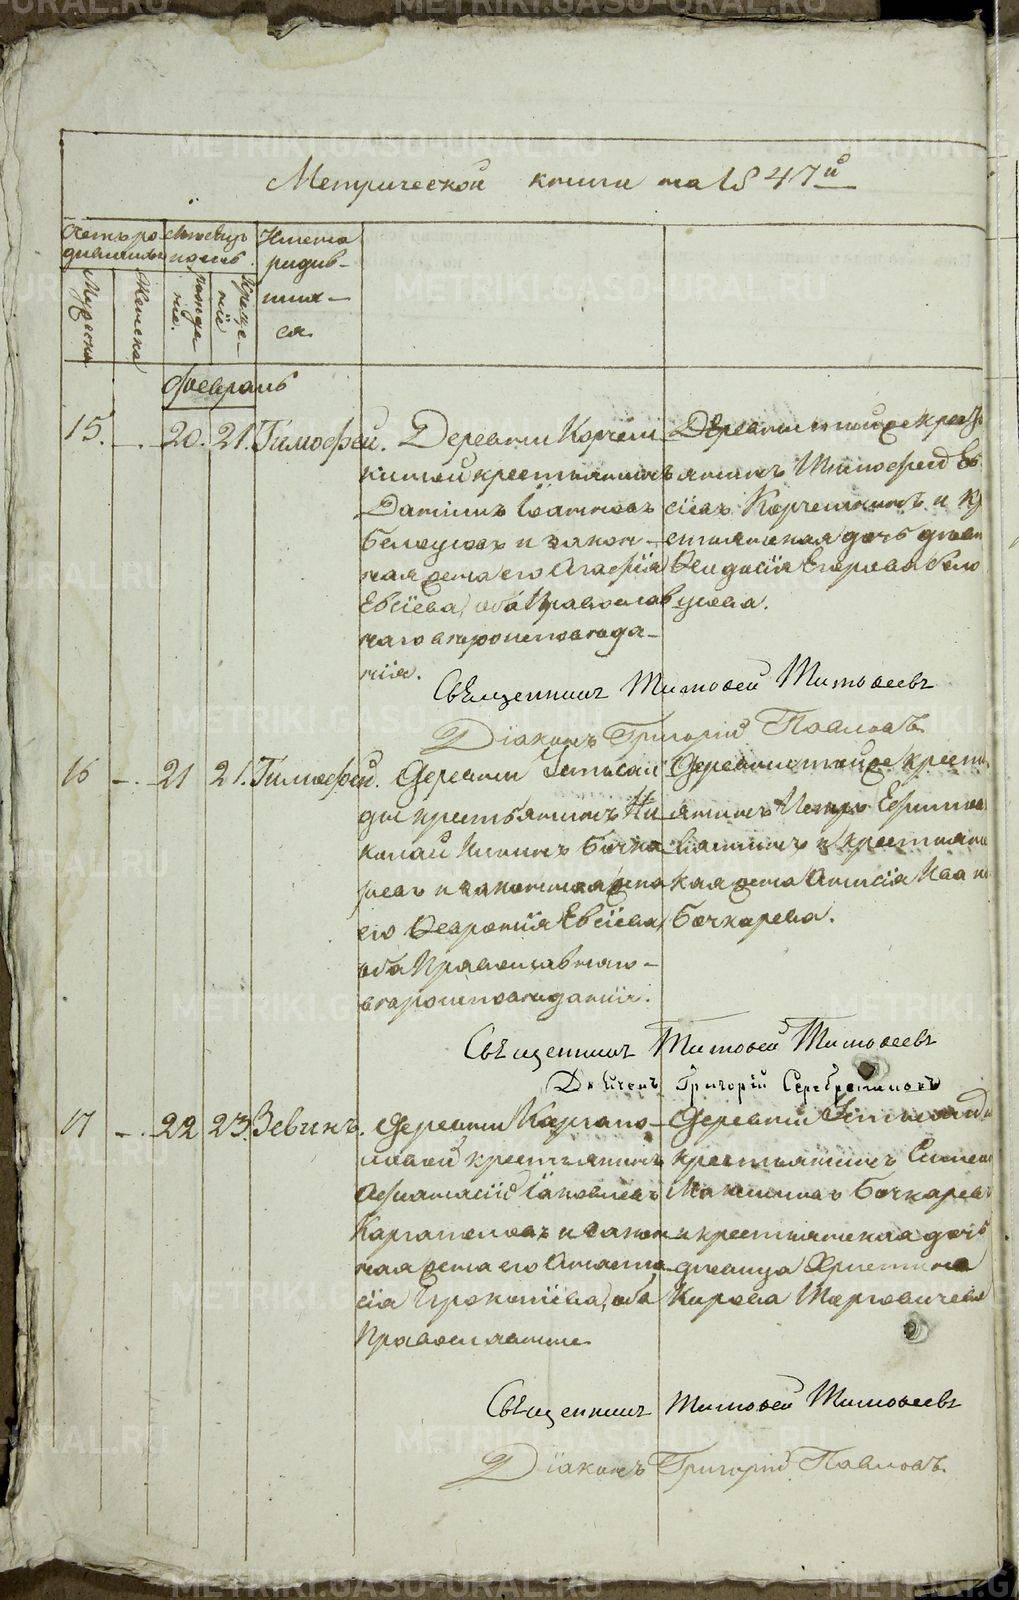 Метрической книги на 1847й
Счетъ ро
дившихся
Мѣсяцъ
и день
Имена
родив-
ших-
ся.
Мужеска
Женска
рожде
нiе.
Креще-
нiе
Февраль
15. - . 20. 21. Тимофей. Деревни Корчем
киной крестьянинъ
Данiилъ Iоанновъ
Белоусовъ и закон-
ная жена его Агафiя
Евсiева, оба Православ
наго вероисповеда-
нiя.
Деревни тойже крест
янинъ Тимофей Ев
сiевъ Корчемкинъ и кр
стьянская дочь девица
Феодосiя Егорова Бело
усова.
Священникъ Тимофей Тимофеевъ
Дiаконъ Григорiй Павловъ
16 - . 21 21. Тимофей. Деревни
крестьянинъ Ни
колай Бочка
ревъ и законная жена
его Февронiя Евсiева,
оба Православнаго
вероисповеданiя.
Деревни тойже крест
янинъ Петръ
и крестьянс
кая жена Анисiя Ива
Бочкарева.
Священникъ Тимофей Тимофеевъ
Григорiй Серебрениковъ
17 - . 22 23. Зевинъ. Деревни Каргапо-
ловой крестьянинъ
Афанасiй Iаковлевъ
Каргаполовъ и закон
ная жена его Анаста
сiя Прокопiева, оба
Православные
Деревни
крестьянинъ Симеон
Бочкаревъ
и крестьянская дочь
девица Христина
Кирова
Священникъ Тимофей Тимофеевъ
Дiаконъ Григорiй Павловъ
METRIKI.GASO-URAL.RU